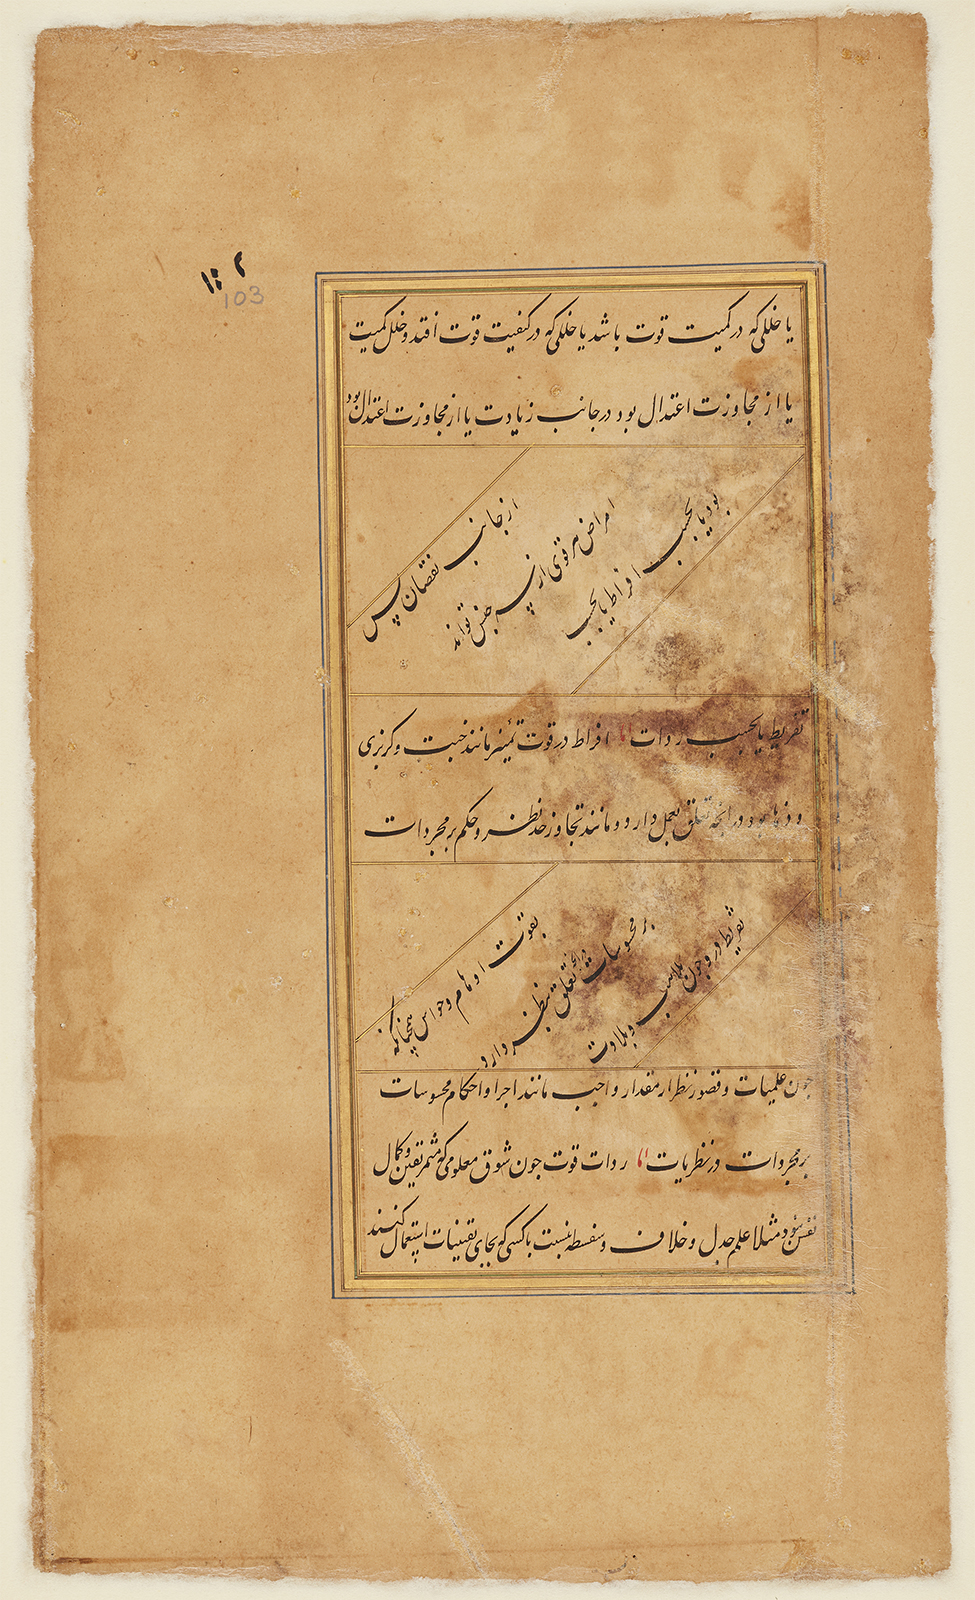 ۱۰۲
103
یا خللی که در کمیت قوت باشد یا خللی که در کیفیت قوت افتد و خلل کمیت
یا از مجاوزت اعتدال بود در جانب زیادت یا از مجاوزت اعتدال بود
از جانب نقصان پس
امراض هر قوی از سه جنس تواند
بود یا بحسب افراط یا بحسب
تفریط یا بحسب ردات اما افراط در قوت تمییز مانند خبث و کربزی
و دها بود در انچه تعلق بعمل دارد و مانند تجاوز حد نظر و حکم بر مجردات
بقوت اوهام و حواس همچنانکه
بر محسوسات در انچه تعلق بنظر دارد و
تفریط در و چون بلاهت و بلادت
چون علمیات و قصور نظر از مقدار واجب مانند اجرا و احکام محسوسات
بر مجردات در نظریات اما ردات قوت چون شوق معلومی که مثمر یقین و کمال
نفس نبود مثلا علم جدل و خلاف و سفسطه بنسبت با کسی که بجای یقینیات استعمال کنند